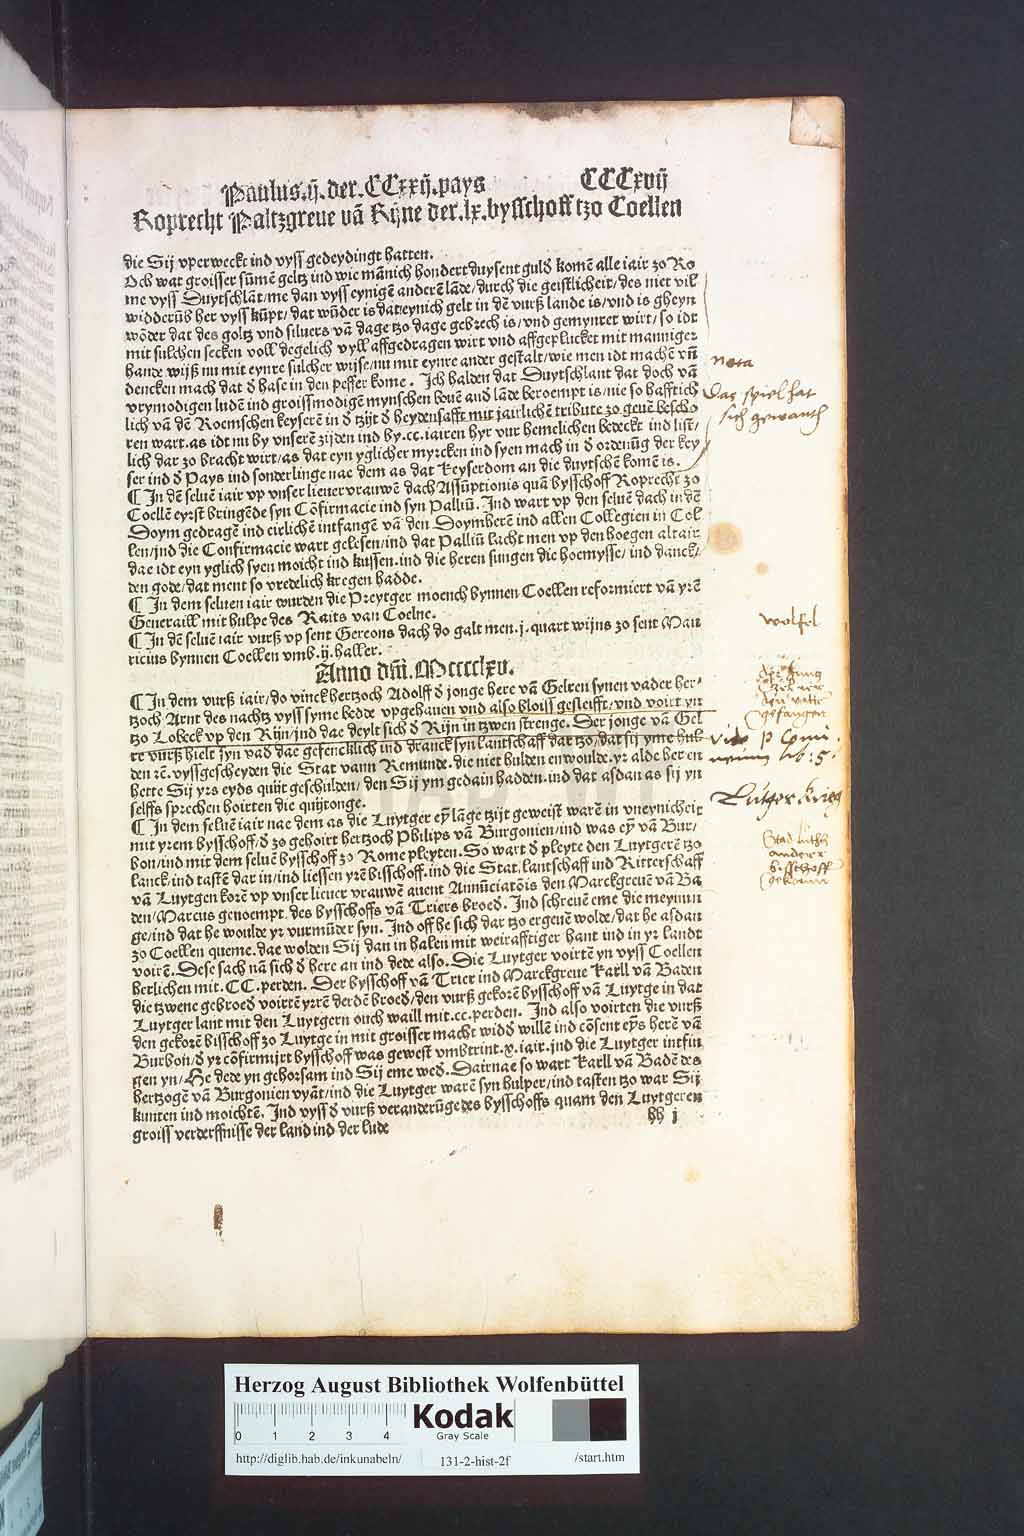 Paulus.ij. der.CCxxij.pays CCCxvij
Roprecht Paltzgreue vā Rijne der.lx.bysschoff tzo Coellen
die Sij vperweckt ind vyss gedeydingt hatten.
Och wat groisser sūmē geltz ind wie mānich hondert duysent guld komē alle iair zo Ro
me vyss Duytschlāt/me dan vyss eynigē anderē lāde/durch die geistlicheit/des niet vil
widderūb her vyss kūpt/dat wūder is dat eynich gelt in dē vurß lande is/vnd is gheyn
wōder dat des goltz vnd siluers vā dage tzo dage gebrech is/vnd gemyntet wirt/so idt
mit sulchen secken voll degelich vyss affgedragen wirt vnd affgeplucket mit manniger
hande wijß nu mit eynre sulcher wijse/nu mit eynre ander gestalt/wie men idt machē vñ
dencken mach dat d hase in den peffer kome. Ich halden dat Duytschlant dat doch vā
vrymodigen ludē ind groissmodigē mynschen bouē and lāde beroempt is/nie so hafftich
lich vā dē Roemschen keyserē in d tzijt d heydensafft mit jairlichē tribute zo geuē bescho
ren wart.as idt nu by vnserē zijden ind by.cc.iairen hyr vur hemelichen bedeckt ind list/
lich dar zo bracht wirt/as dat eyn yglicher myrcken ind syen mach in d ordenūg der key
ser ind d Pays ind sonderlinge nae dem as dat Keyserdom an die duytschē komē is.
¶ In dē seluē iair vp vnser lieuer vrauwē dach Assūptionis quā bysschoff Roprecht zo
Coellē eyrst bringēde syn Cōfirmacie ind syn Palliū. Ind wart vp den seluē dach in dē
Doym gedragē ind eirlichē intfangē vā den Doymherē ind allen Collegien in Col
len/ind die Confirmacie wart gelesen/ind dat Palliū lacht men vp den hoegen altair
dae idt eyn yglich syen moicht ind kussen.ind die heren sungen die hoemysse/ind danck/
den gode/dat ment so vredelich kregen hadde.
¶ In dem seluen iair wurden die Preytger moench bynnen Coellen reformiert vā yrē
Generaill mit hulpe des Raits van Coelne.
¶ In dē seluē iair vurß vp sent Gereons dach do galt men.j.quart wijns zo sent Mau
ricius bynnen Coellen vmb.ij.haller.
Anno dñi.Mcccclxv.
¶ In dem vurß iair/do vinck hertzoch Adolff d jonge here vā Gelren synen vader her/
tzoch Arnt des nachtz vyss syme bedde vpgehauen vnd also bloiss gesleifft/vnd voirt yn
tzo Lobeck vp den Rijn/ind dae deylt sich d Rijn in tzwen strenge. Der jonge vā Gel
re vurß hielt syn vad dae gefencklich ind dranck syn lantschaff dar tzo/dat sij yme hul
den rē.vyssgescheyden die Stat vann Remunde.die niet hulden enwoulde.yr alde her en
hette Sij yrs eyds quijt geschulden/den Sij ym gedain hadden.ind dat asdan as sij yn
selffs sprechen hoirten die quijtonge.
¶ In dem seluē iair nae dem as die Luytger eyn lāge tzijt geweist warē in vneynicheit
mit yrem bysschoff/d zo gehoirt hertzoch Philips vā Burgonien/ind was eȳ vā Bur/
bon/ind mit dem seluē bysschoff zo Rome pleyten. So wart d pleyte den Luytgerē tzo
lanck/ind tastē dar in/ind liessen yrē bisschoff.ind die Stat.lantschaff ind Ritterschaff
vā Luytgen korē vp vnser lieuer vrauwē auent Annūciatōis den Marckgreuē vā Ba
den/Marcus genoempt.des bysschoffs vā Triers broed. Ind schreuē eme die meynun
ge/ind dat he woulde yr vurmūder syn. Ind off he sich dar tzo ergeuē wolde/dat he asdan
zo Coellen queme.dae wolden Sij dan in halen mit weirafftiger hant ind in yr landt
voirē. Dese sach nā sich d here an ind dede also. Die Luytger voirtē yn vyss Coellen
herlichen mit.CC.perden. Der bysschoff vā Trier ind Marckgreue Karll vā Baden
die tzwene gebroed voirtē yrrē derdē broed/den vurß gekorē bysschoff vā Luytge in dat
Luytger lant mit den Luytgern ouch waill mit.cc.perden. Ind also voirten die vurß
den gekorē bisschoff zo Luytge in mit groisser macht widd willē ind cōsent eȳs herē vā
Burbon/d yr cōfirmijrt bysschoff was gewest vmbtrint.x.iair.ind die Luytger intfin
gen yn/He dede yn gehorsam ind Sij eme wed. Dairnae so wart Karll vā Badē des
hertzogē vā Burgonien vyāt/ind die Luytger warē syn hulper/ind tasten tzo war Sij
kunten ind moichtē. Ind vyss d vurß veranderūge des bysschoffs quam den Luytgeren
groiss verderffnisse der land ind der lude
hh i
nota
Das spiel hat
sich gewandt
wolfel
Der Jung
den vatter
gefangen
vide P Comi
neum lib: 5.
Lütger krieg
Stad lüttich
anderer
bisschoff
gekoren
Herzog August Bibliothek Wolfenbüttel
0 1 2 3 4
Kodak
Gray Scale
http://diglib.hab.de/inkunabeln/ 131-2-hist-2f /start.htm